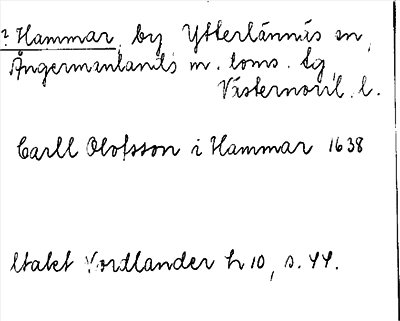 ? Hammar, by Ytterlännäs sn,
Ångermanlands m. doms. tg,
Västernorrl. l.
Carll Olofsson i Hammar 1638
Utalet Nordlander h 10, s. 44.